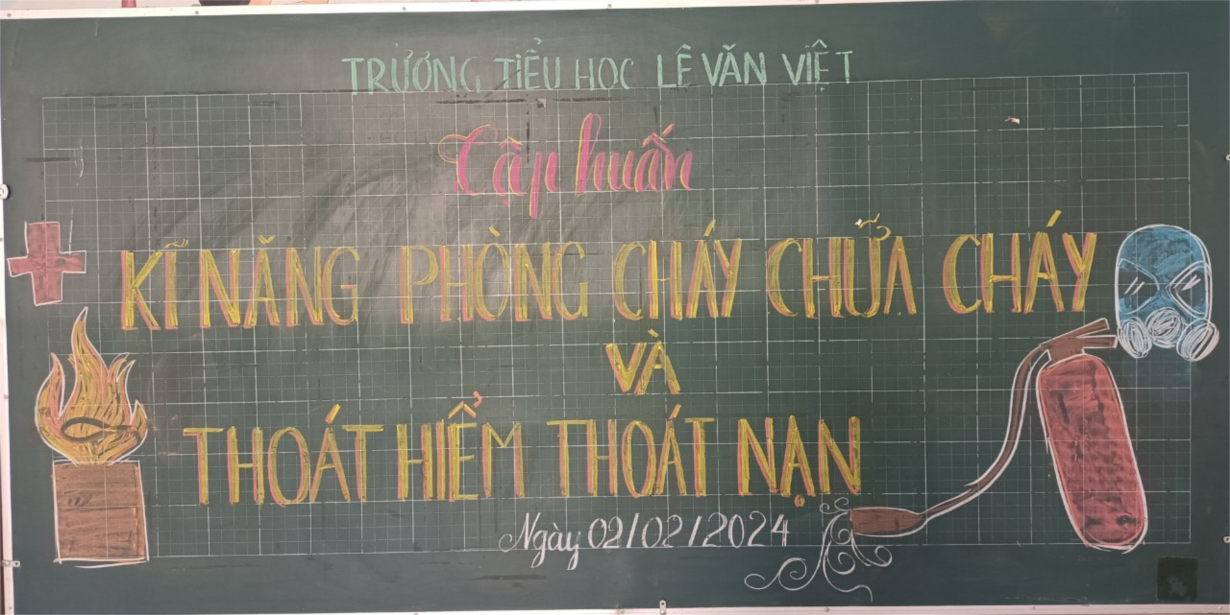 TRƯỜNG TIỂU HỌC LÊ VĂN VIỆT
Tập huấn
KĨ NĂNG PHÒNG CHÁY CHỮA CHÁY
VÀ
THOÁT HIỂM THOÁT NẠN
Ngày 02/02/2024